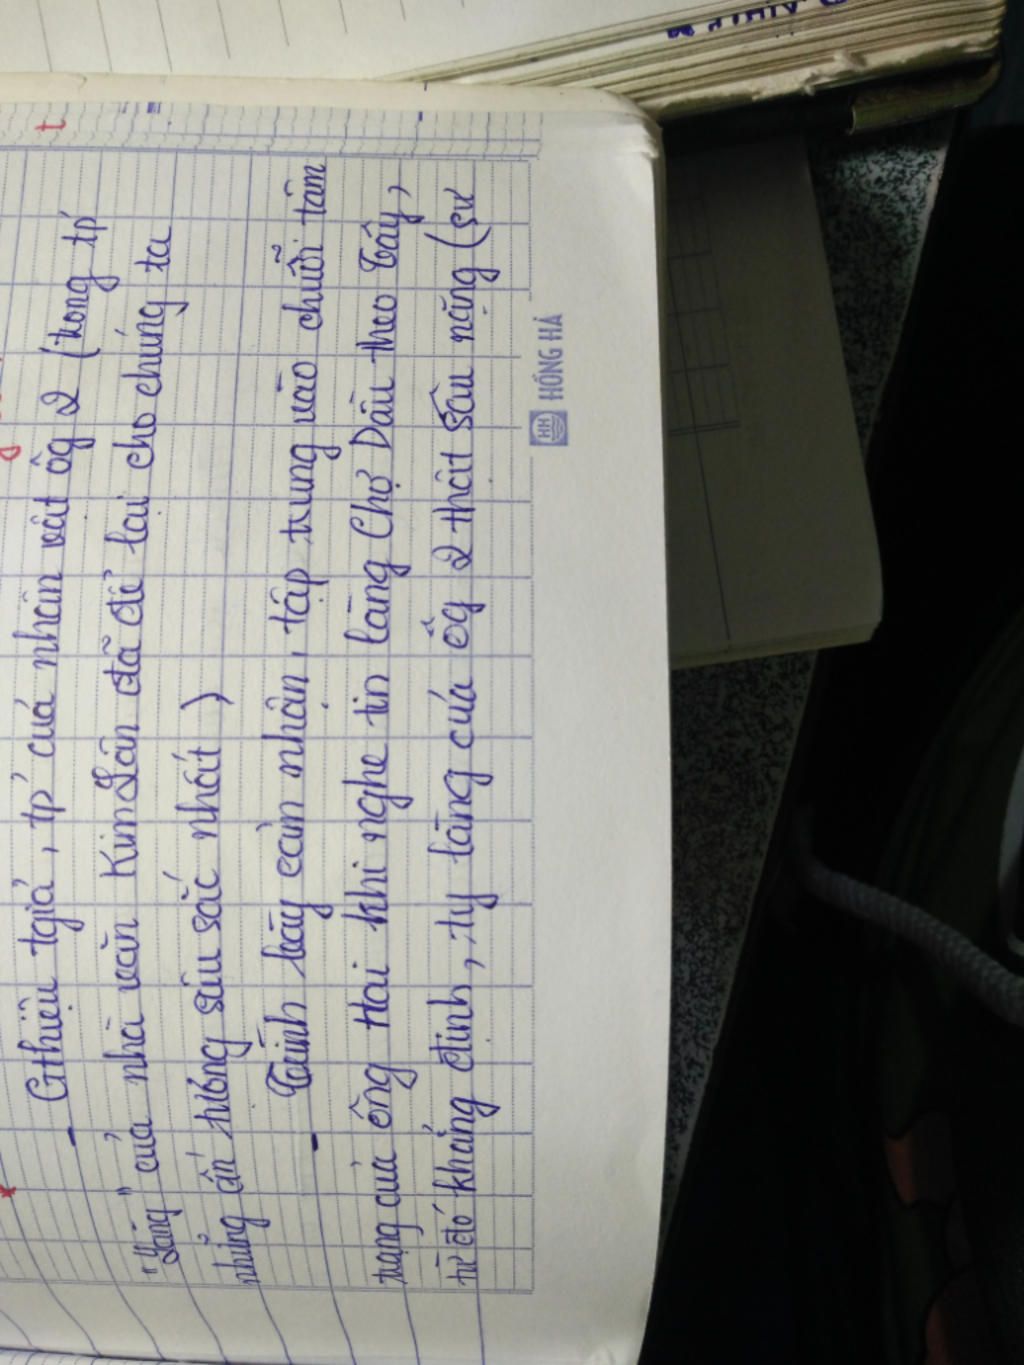 - Gthiệu tgiả, tp' của nhân vật ôg 2 (trong tp'
"Làng" của nhà văn Kim Lân đã để lại cho chúng ta
những ấn tượng sâu sắc nhất)
- Trình bày cảm nhận, tập trung vào chuỗi tâm
trạng của ông Hai khi nghe tin làng Chợ Dầu theo Tây,
từ đó khẳng định, ty làng của ôg 2 thật sâu nặng (sự
HỒNG HÀ
HH
t